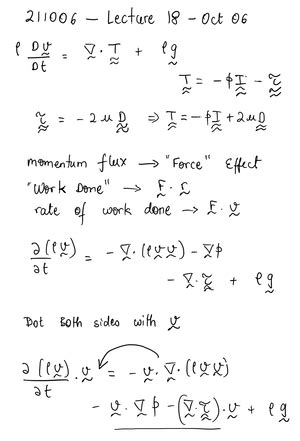 211006 – Lecture 18 – Oct 06
ρ Dv/Dt = ∇·T + ρg
T = -pI - τ
τ = -2μD ⇒ T = -pI + 2μD
momentum flux → "Force" Effect
"Work Done" → F·r
rate of work done → F·v
∂(ρv)/∂t = -∇·(ρvv) - ∇p
- ∇·τ + ρg
Dot both sides with v
∂(ρv)/∂t · v = -v·∇·(ρvv)
- v·∇p - (∇·τ)·v + ρg